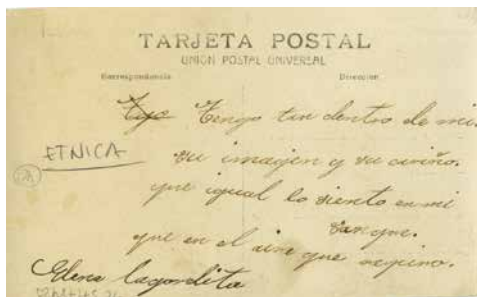 TARJETA POSTAL
UNION POSTAL UNIVERSAL
Correspondencia Direccion
Tengo tan dentro de mi
ETNICA
su imagen y su cariño.
que igual lo siento en mi
sangre.
que en el aire que respiro.
Elena lagordita